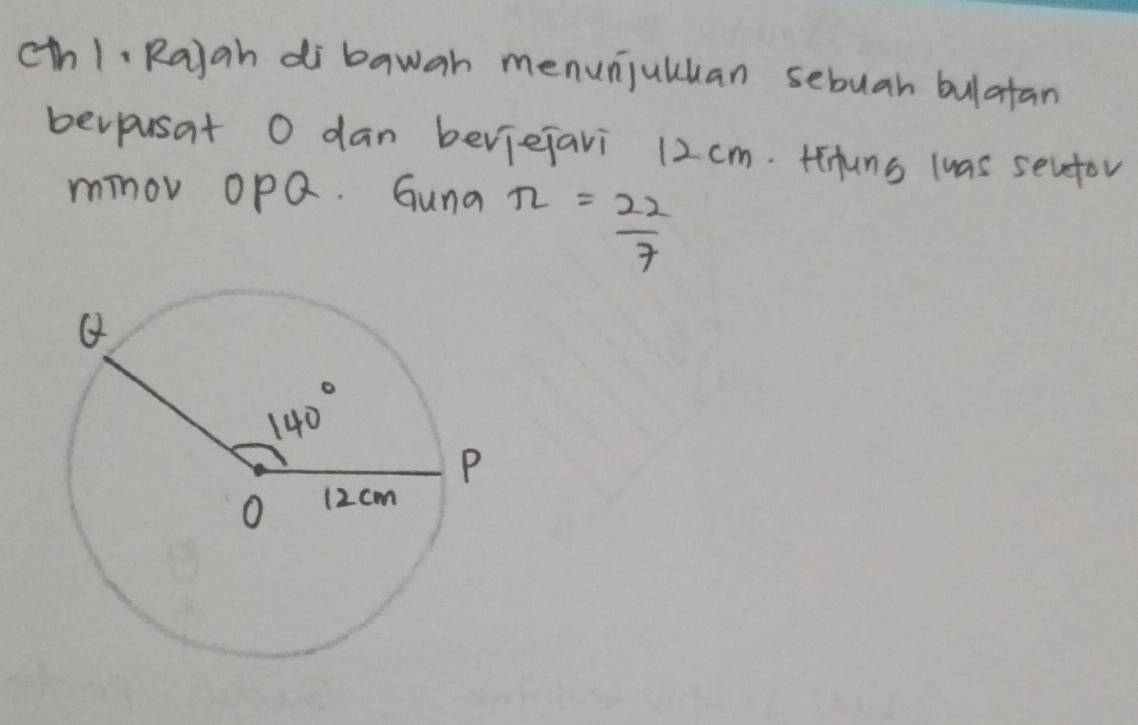 cth 1. Rajah di bawah menunjukkan sebuah bulatan
berpusat O dan berjejari 12 cm. Hitung luas sektor
minor OPQ. Guna π = 22/7
Q
140°
P
O
12 cm